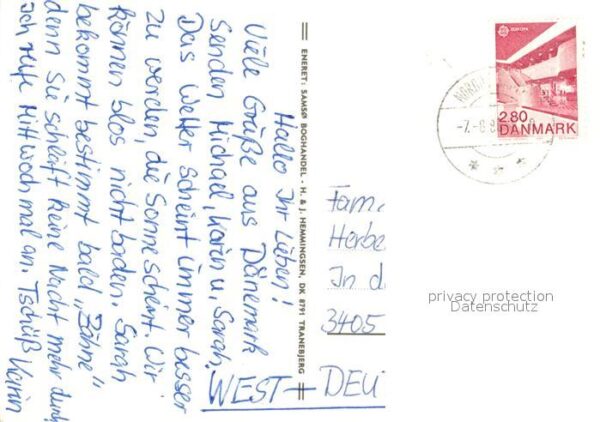 Hallo Ihr Lieben!
Viele Grüße aus Dänemark
Senden Michael, Karin u. Sarah.
Das Wetter scheint immer besser
zu werden, die Sonne scheint. Wir
können blos nicht baden. Sarah
bekommt bestimmt bald „Zähne"
denn Sie schläft keine Nacht mehr durch
Ich rufe Mittwoch mal an. Tschüß Karin
ENERET: SAMSØ BOGHANDEL - H. & J. HEMMINGSEN, DK 8791 TRANEBJERG
EUROPA
2.80
DANMARK
-7.-8.8
Fam.
Herbe
In d
3405
WEST-DEU
privacy protection
Datenschutz